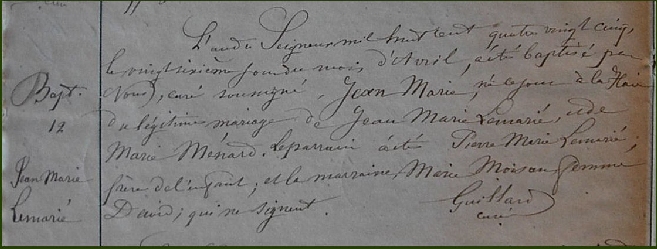 L'an du Seigneur mil huit cent quatre vingt cinq,
le vingt sixième jour du mois d'Avril, a été baptisé par
Nous, curé soussigné, Jean Marie, né ce jour à la Haie
du légitime mariage de Jean Marie Lemarié, et de
Marie Ménard. Le parrain a été Pierre Marie Lemarié,
frère de l'enfant; et la marraine Marie Moison femme
David; qui ne signent.
Guillard
curé
Bapt.
12
Jean Marie
Lemarié